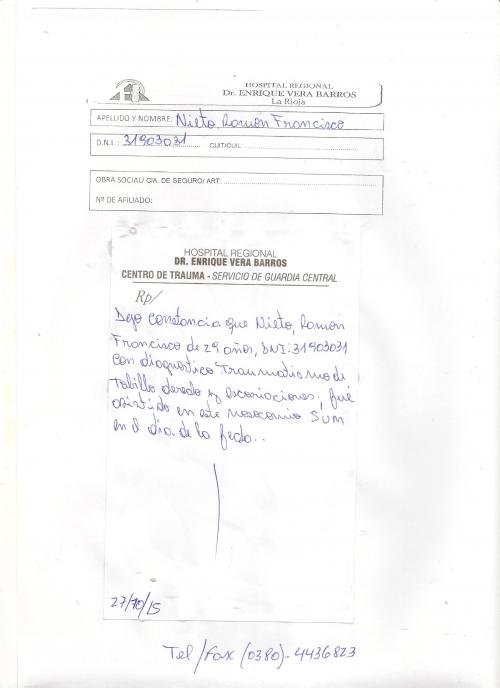 HOSPITAL REGIONAL
Dr. ENRIQUE VERA BARROS
La Rioja
APELLIDO Y NOMBRE: Nieto, Ramón Francisco
D.N.I.: 31903031 CUIT/CUIL:
OBRA SOCIAL/ CIA. DE SEGURO/ ART:
Nº DE AFILIADO:
HOSPITAL REGIONAL
DR. ENRIQUE VERA BARROS
CENTRO DE TRAUMA - SERVICIO DE GUARDIA CENTRAL
Rp/
Dejo constancia que Nieto, Ramón
Francisco de 29 años, DNI: 31903031
con diagnostico Traumatismo de
Tobillo derecho y escoriaciones, fue
asistido en este nosocomio SUM
en el dia de la fecha..
27/10/15
Tel/fax (0380)-4436823